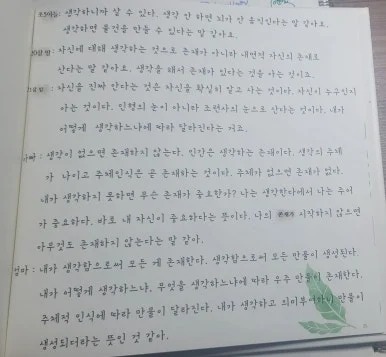 초3아들: 생각하니까 살 수 있다. 생각 안 하면 뇌가 안 움직인다는 말 같아요.
생각하면 물건을 만들 수 있다는 말 같아요.
자신에 대해 생각하는 것으로 존재가 아니라 내면적 자신의 존재로
산다는 말 같아요. 생각을 해서 존재가 있다는 것을 아는 것이죠.
자신을 진짜 안다는 것은 자신을 확실히 알고 사는 것이다. 자신이 누구인지
아는 것이다. 인형의 눈이 아니라 조련사의 눈으로 산다는 것이다. 내가
어떻게 생각하느냐에 따라 달라진다는 거죠.
아빠: 생각이 없으면 존재하지 않는다. 인간은 생각하는 존재이다. 생각의 주체
가 나이고 주체인식은 곧 존재하는 것이다. 주체가 없으면 존재가 없다.
내가 생각하지 못하면 무슨 존재가 중요한가? 나는 생각한다에서 나는 주어
가 중요하다. 바로 내 자신이 중요하다는 뜻이다. 나의 존재가 시작하지 않으면
아무것도 존재하지 않는다는 말 같아.
엄마: 내가 생각함으로써 모든 게 존재한다. 생각함으로써 모든 만물이 생성된다
내가 어떻게 생각하느냐, 무엇을 생각하느냐에 따라 우주 만물이 존재한다.
주체적 인식에 따라 만물이 달라진다. 내가 생각하고 의미부여하니 만물이
생성되더라는 뜻인 것 같아.